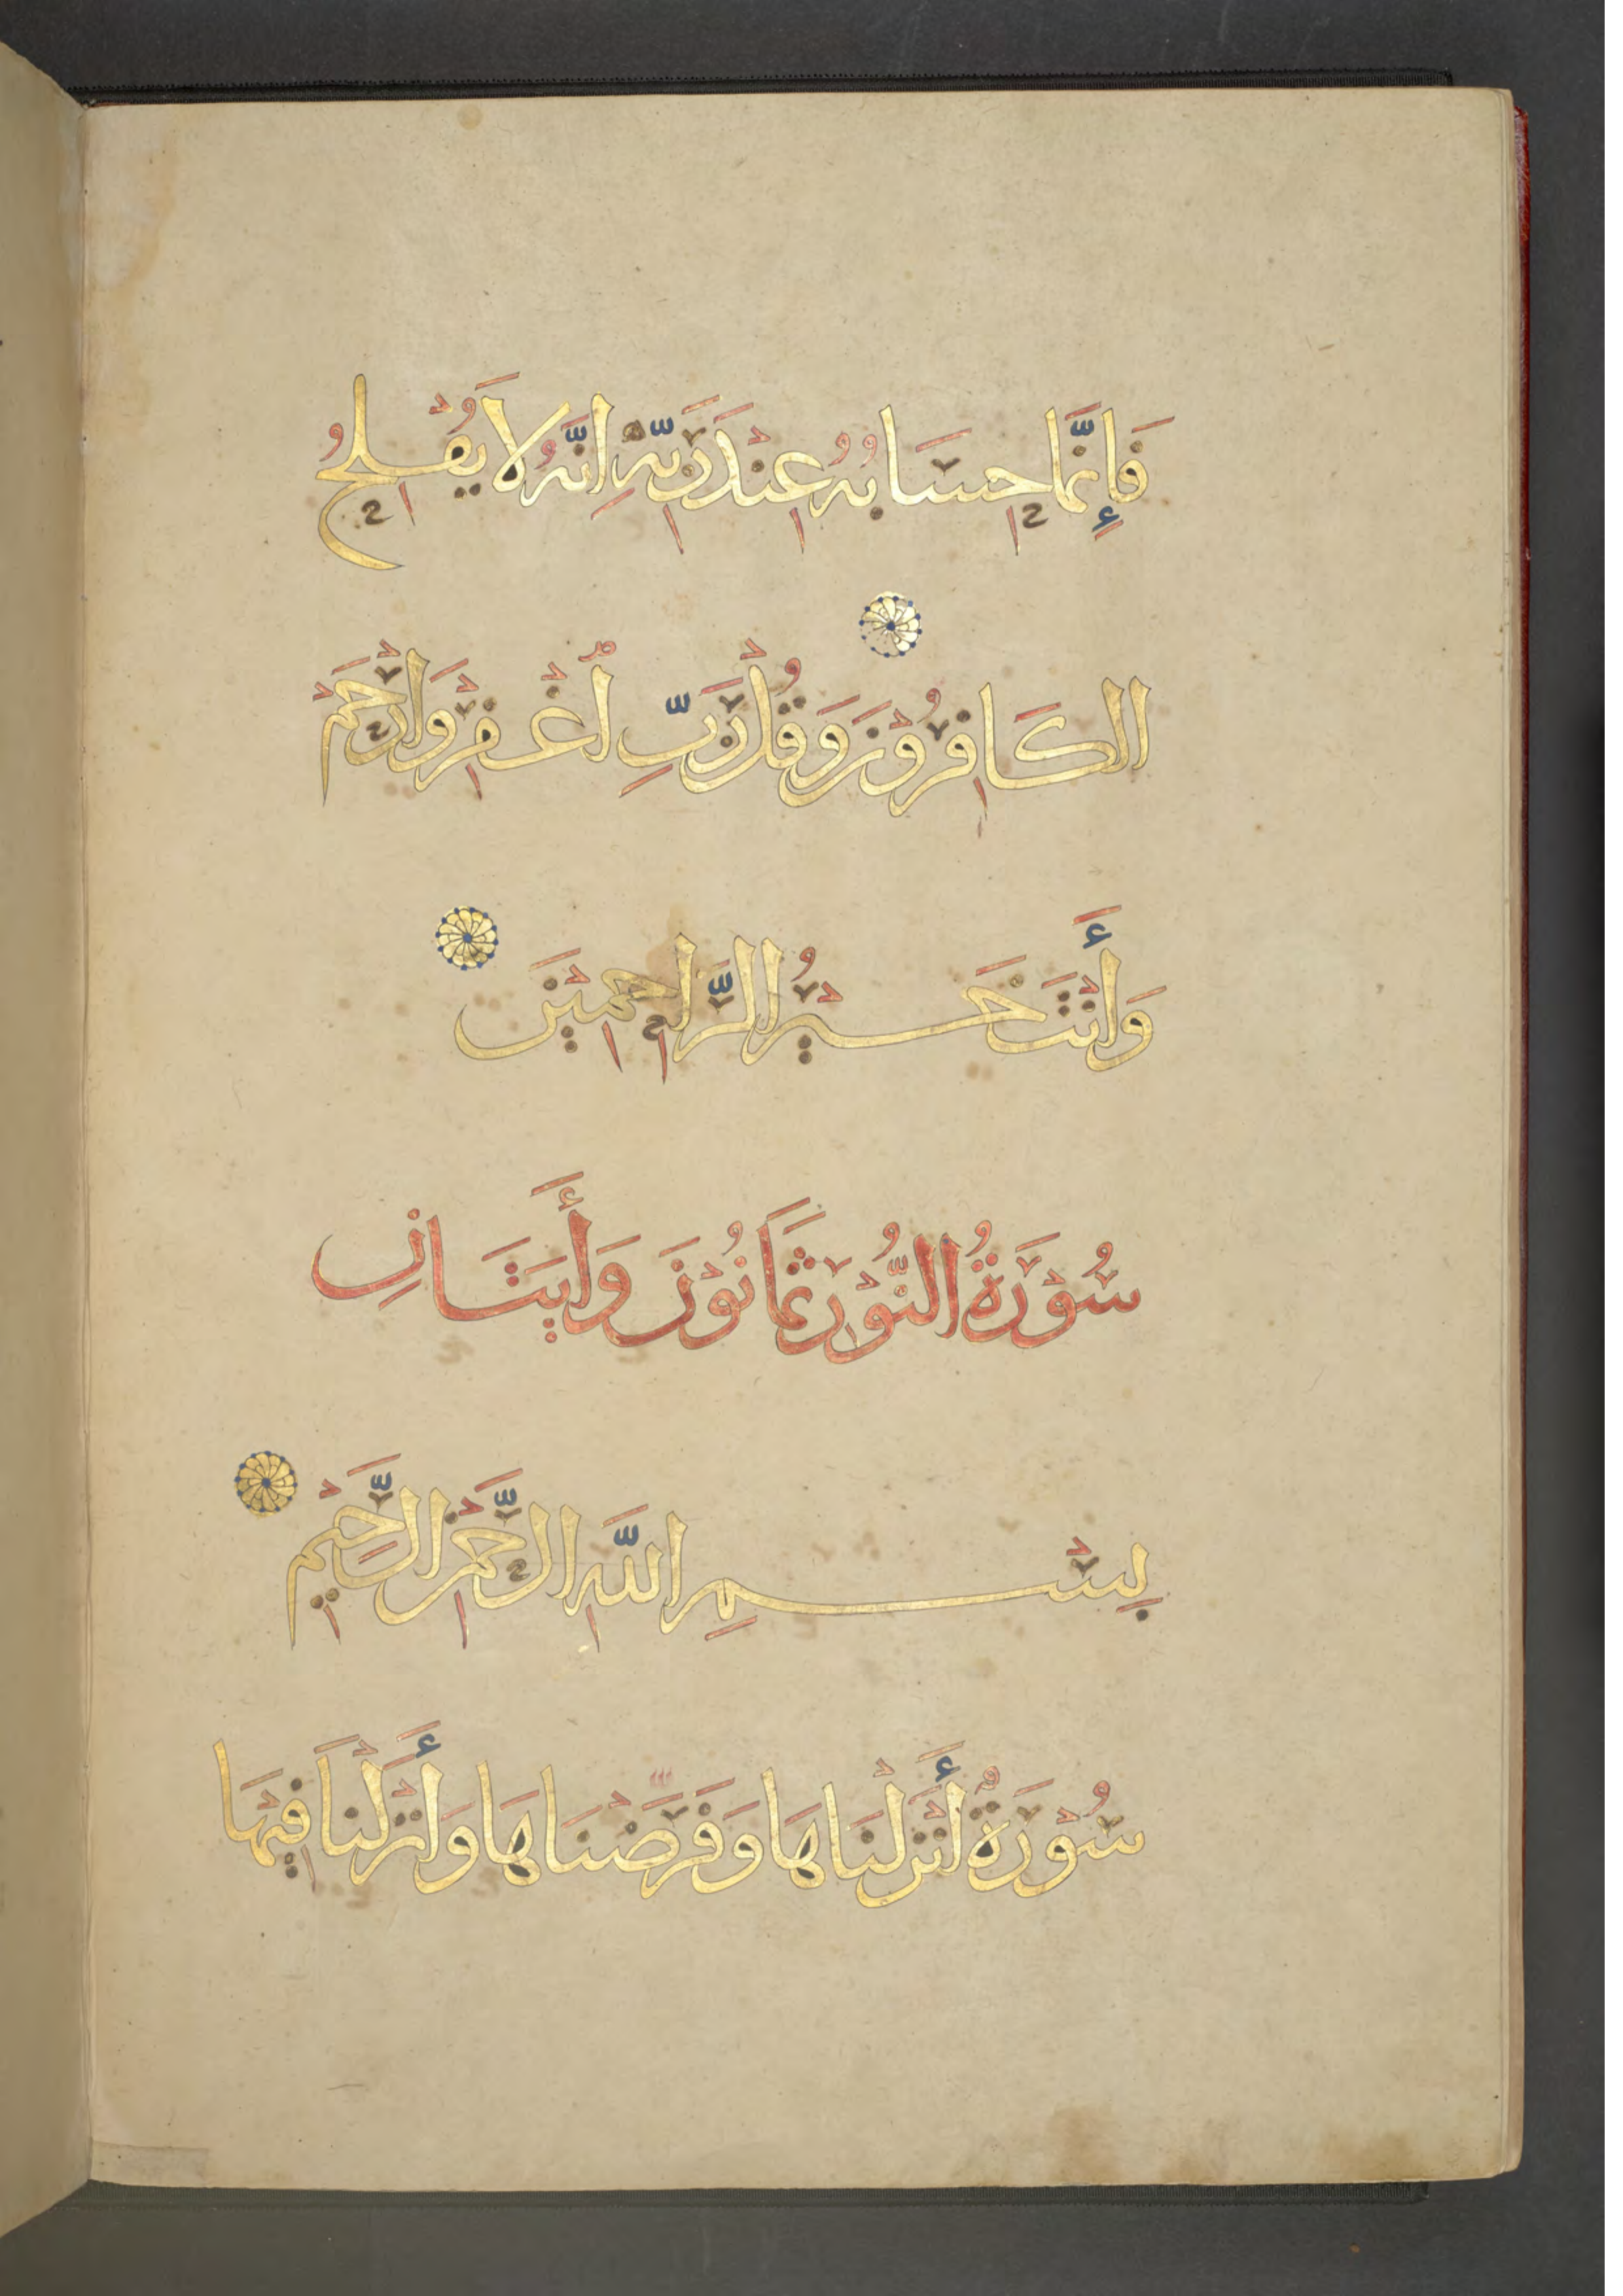 فَإِنَّمَا حِسَابُهُ عِنْدَ رَبِّهِ اِنَّهُ لَا يُفْلِحُ
الكَافِرُوْنَ وَقُلْ رَبِّ اُغْفِرْ وَارْحَمْ
وَأَنْتَ خَيْرُ الرَّاحِمِيْنَ
سُوْرَةُ النُّوْر ثَمَانُوْنَ وَأَيَتَانِ
بِسْمِ اللَّهِ الرَّحْمَنِ الرَّحِيْمِ
سُوْرَةٌ أَنْزَلْنَاهَا وَفَرَّضْنَاهَا وَأَنْزَلْنَا فِيْهَا